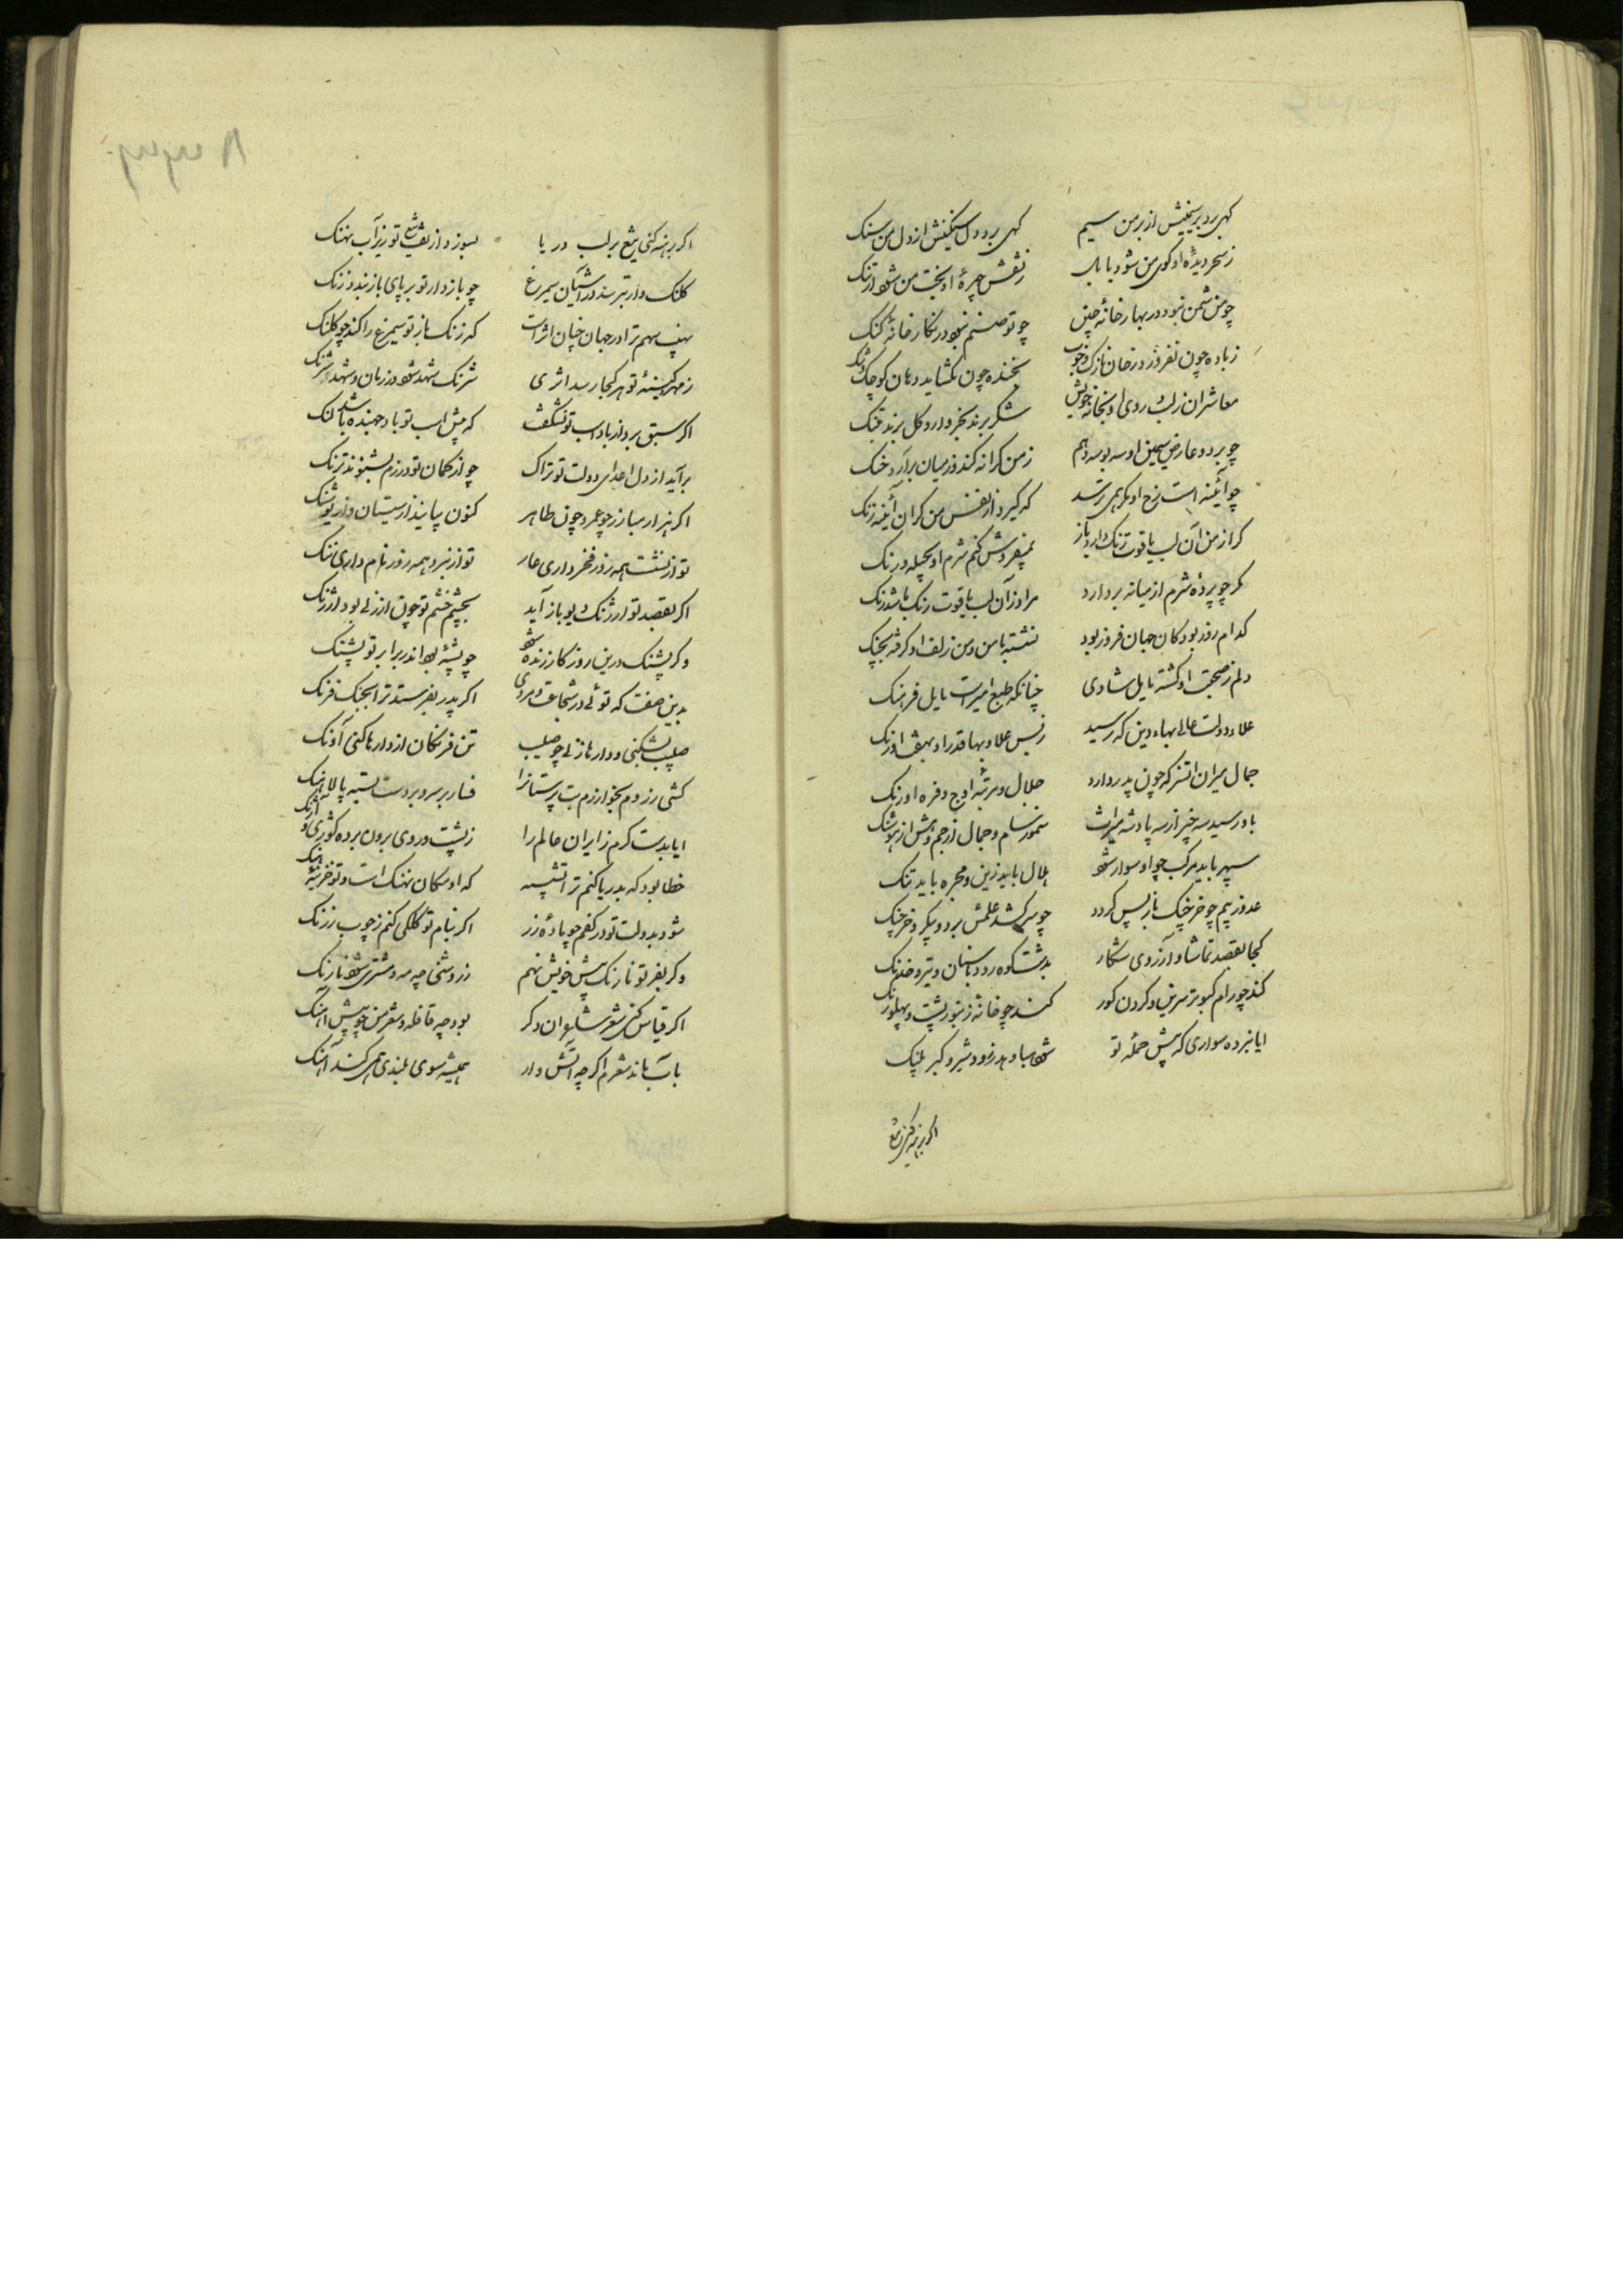 کهی برد بر سیمینش از بر من سیم کهی برد دل سنکینش از دل من سنک
ز سحر دیدهٔ او کوی من شود بابل ز نقش چهرهٔ او بخت من شود ارتنک
چو من شمن نبود در بهار خانهٔ چین چو تو صنم نبود در نکار خانهٔ کنک
ز باده چون بفروزد رخان نازک و خوب بخنده چون بکشاید دهان کوچک و تنک
معاشران ز لب و روی او بخانهٔ خویش شکر برند بخروار و کل برند بتنک
چو بر دو عارض سیمین او سه بوسه دهم ز من کرانه کند وز میان برآرد جنک
چو آئینه است رخ او مکر همی ترسد که کیرد از نفس من کران آئینه زنک
کر از من آن لب یاقوت رنک دارد باز
مکر چو پردهٔ شرم از میانه بردارد مرا از آن لب یاقوت رنک باشد رنک
کدام روز بود کان جهان فروز بود نشسته با من و من زلف او کرفته بچنک
دلم ز صحبت او کشته مایل شادی چنانکه طبع امیر است مایل فرهنک
علاء دولت عالی بهاء دین که رسید ز بس علا و بها قدر او بهفت اورنک
جمال میران اتسز که چون پدر دارد جلال و مرتبه و اوج و فره اورنک
بدو رسید سه چیز از سه پادشه میراث ز سام و جمال از جم و هش از هوشنک
سپهر باید مرکب چو او سوار شود هلال باید زین و مجره باید تنک
عدو ز بیم چو خرچنک باز پس کردد چو سر کشد علمش بر دو پیکر و خرچنک
کجا بقصد تماشا و آرزوی شکار بدشت و کوه رود با سنان و تیر و خدنک
کند چو رام کبوتر سرین و کردن کور کند چو خانه زنبور پشت و پهلوی رنک
ایا نبرده سواری که پیش حملهٔ تو شود هبا و هدر زور و شیر و کبر پلنک
اکر برهنه کنی تیغ
اکر برهنه کنی تیغ بر لب دریا بسوزد از تف تیغ تو زیر آب نهنک
کلنک وار بترسد در آشیان سیمرغ چو بازدار تو بر پای باز بندد زنک
نهیب سهم ترا در جهان چنان اثر است که زنک باز تو سیمرغ را کند چو کلنک
ز مهر و کینهٔ تو هر کجا رسد اثری شرنک شهد شود در زمان و شهد شرنک
اکر سبق برد از باد اسب تو نشکفت که پیش اسب تو باد جهنده باشد لنک
برآید از دل اعدای دولت تو تراک چو از کمان تو در رزم بشنوند ترنک
اکر هزار مبارز چو عمرو و چون طاهر کنون بیایند از سیستان و از پوشنک
تو از نشست همه روز فخر داری عار تو از نبرد همه روز نام داری ننک
اکر بقصد تو ارژنک دیو باز آید بچشم خشم تو چون ارزنی بود ارژنک
وکر پشنک درین روزکار زنده شود چو پشهٔ بود اندر برابر تو پشنک
بدین صفت که توئی در شجاعت و مردی اکر پدر بفرستد ترا بجنک فرنک
صلیب بشکنی و دارها زنی چو صلیب تن فرنکان از دارها کنی آونک
کشی ز روم بخوارزم بت پرستانرا فسار بر سر و بر دست بسته پالاهنک
ایا بدست کرم ز ایران عالم را ز پشت و روی برون برده
خطا بود که بدریا کنم ترا تشبیه که او مکان نهنک است و تو خزینهٔ
شود بدولت تو در کفم چو پارهٔ زر اکر بنام تو کلکی کنم ز چوب زرنک
وکر بفر تو نارنک پیش خویش نهم ز روشنی چه مه و مشتری شود نارنک
اکر قیاس کنی شعر شاعران دکر بود چه قافله و شعر من چو پیش آهنک
بآب ماند شعرم اکر چه آتش وار همیشه سوی بلندی همی کند آهنک